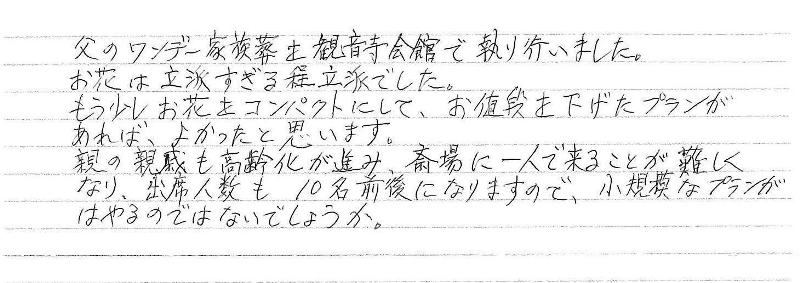 父のワンデー家族葬を観音寺会館で執り行いました。
お花は立派すぎる程立派でした。
もう少しお花をコンパクトにして、お値段を下げたプランが
あれば、よかったと思います。
親の親戚も高齢化が進み、斎場に一人で来ることが難しく
なり、出席人数も10名前後になりますので、小規模なプランが
はやるのではないでしょうか。